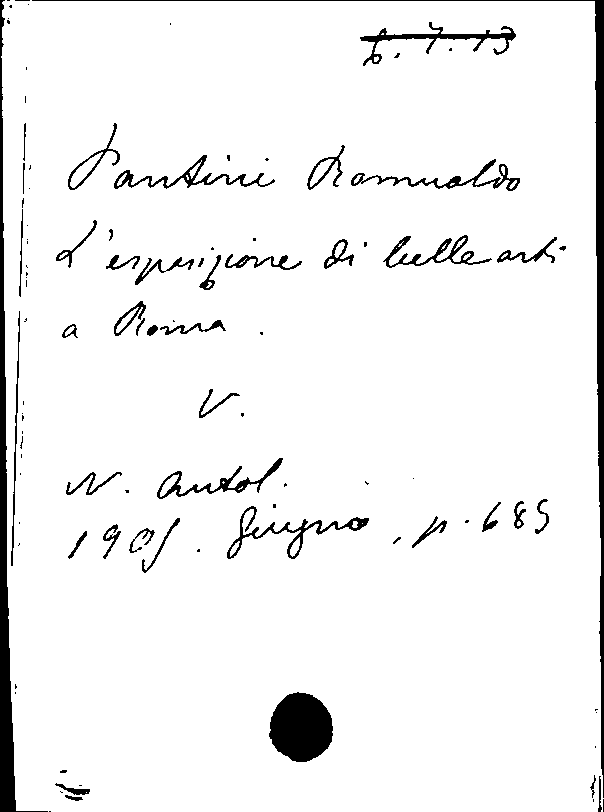 6.7.13
Pantini Romualdo
L'esposizione di belle arti
a Roma.
V.
N. Antol.
1905. Giugno, p. 685